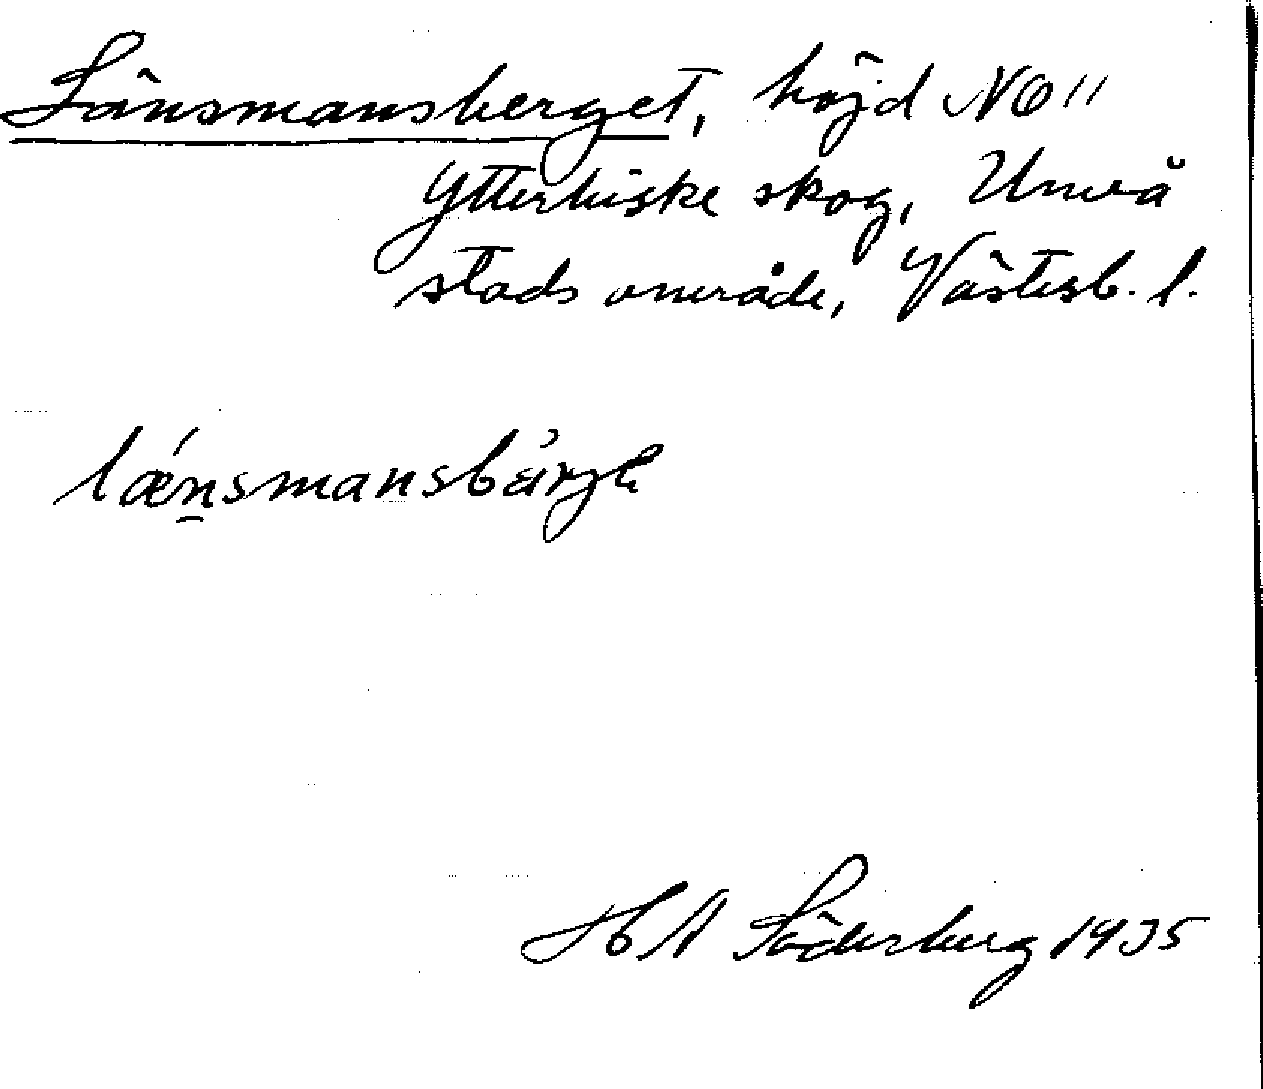 Länsmansberget, höjd NO"
Ytterhiske skog, Umeå
stads område, Västerb. l.
lǽnsmansbärjɛ
H A Söderberg 1935